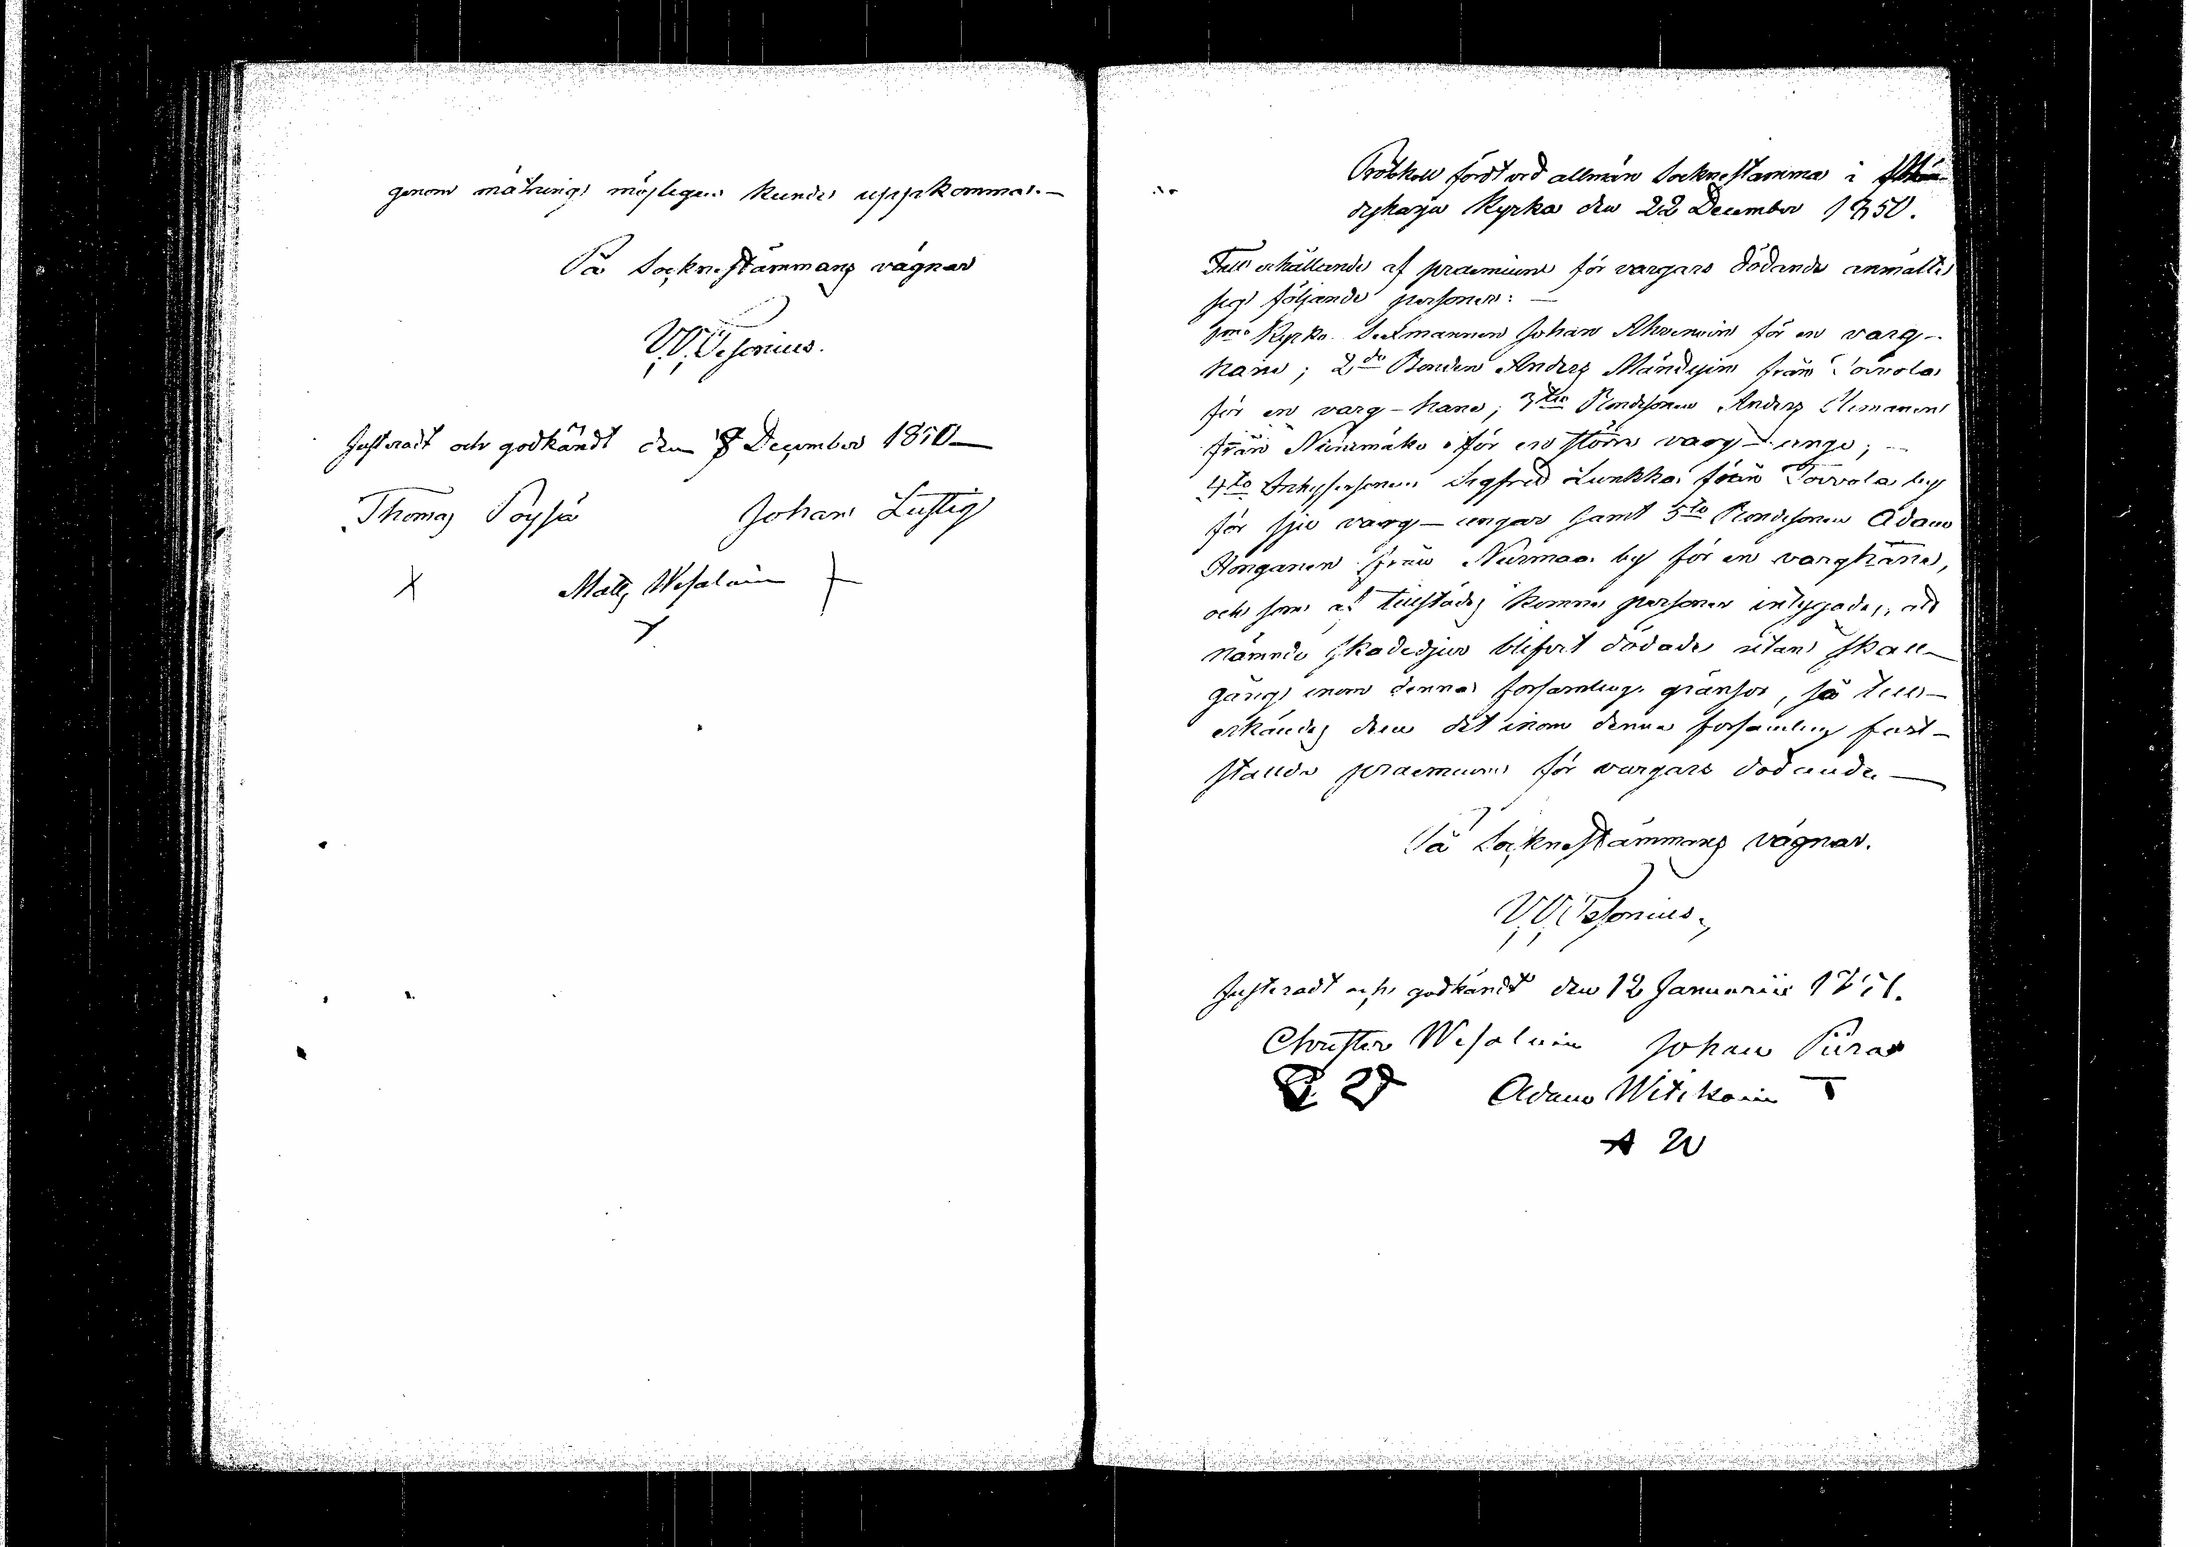 genom mätning möjligen kunde uppkomma. —
På Sockne stämmans vägnar
V. V. Tesonius.
Justeradt och godkändt den 8 December 1850 —
Thomas Pöysä Johan Lustig
Matts Wesalain
Protokoll fördt vid allmän Sockne stämma i Män-
dyharju Kyrka den 22 December 1850.
Till erhållande af praemium för vargars dödande anmälte
sig följande personer: —
1mo Kyrko Sexmannen Johan Ahvenain för en varg-
hane; 2do Bonden Anders Mändyin från Toivola
för en varg-hane; 3tio Bondesonen Anders
från Niinimäki för en större varg-unge; —
4to Inhysesonen Sigfred Lunkka från Toivola by
för sju varg-ungar samt 5to Bondesonen Adam
Honganen från Nurmaa by för en varghane,
och som af tillstädes komne personer intygades, att
nämnde skadedjur blifvit dödade utan skall-
gång inom denna församlings gränsor, så till-
erkändes dem det inom denna församling fast-
ställde praemium för vargars dödande —
På Sockne stämmans vägnar.
V. V. Tesonius.
Justeradt och godkändt den 12 Januarii 1851.
Christer Wesalain Johan Piira
Adam Witikain T
A W